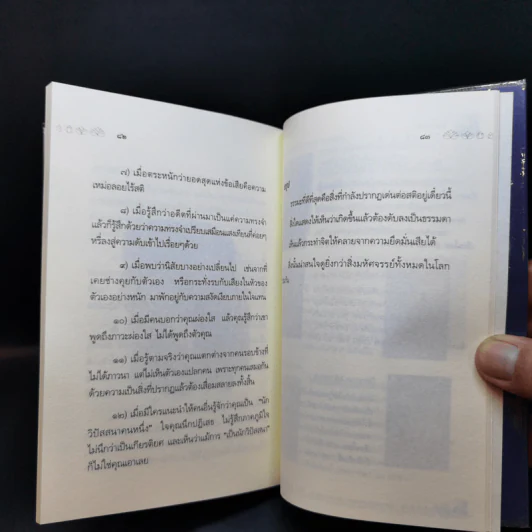 ๘๒
๗) เมื่อตระหนักว่ายอดสุดแห่งข้อเสียคือความ
เหม่อลอยไร้สติ
๘) เมื่อรู้สึกว่าอดีตที่ผ่านมาเป็นแค่ความทรงจำ
แล้วก็รู้สึกด้วยว่าความทรงจำเปรียบเสมือนแสงเทียนที่ค่อยๆ
หรี่ลงสู่ความดับเข้าไปเรื่อยๆด้วย
๙) เมื่อพบว่านิสัยบางอย่างเปลี่ยนไป เช่นจากที่
เคยช่างคุยกับตัวเอง หรือกระทั่งรบกับเสียงในหัวของ
ตัวเองอย่างหนัก มาพักอยู่กับความสงัดเงียบภายในใจแทน
๑๐) เมื่อมีคนบอกว่าคุณผ่องใส แล้วคุณรู้สึกว่าเขา
พูดถึงภาวะผ่องใส ไม่ได้พูดถึงตัวคุณ
๑๑) เมื่อรู้ตามจริงว่าคุณแตกต่างจากคนรอบข้างที่
ไม่ได้ภาวนา แต่ไม่เห็นตัวเองแปลกคน เพราะทุกคนเสมอกัน
ด้วยความเป็นสิ่งที่ปรากฏแล้วต้องเสื่อมสลายลงทั้งสิ้น
๑๒) เมื่อมีใครแนะนำให้คนอื่นรู้จักว่าคุณเป็น "นัก
วิปัสสนาคนหนึ่ง" ใจคุณนึกปฏิเสธ ไม่รู้สึกภาคภูมิใจ
ไม่นึกว่าเป็นเกียรติยศ และเห็นว่าแม้การ "เป็นนักวิปัสสนา"
ก็ไม่ใช่คุณเอาเลย
๘๓
ธรรมะที่ดีที่สุดคือสิ่งที่กำลังปรากฏเด่นต่อสติอยู่เดี๋ยวนี้
สิ่งใดแสดงให้เห็นว่าเกิดขึ้นแล้วต้องดับลงเป็นธรรมดา
เห็นแล้วกระทำจิตให้คลายจากความยึดมั่นเสียได้
สิ่งนั้นน่าสนใจดูยิ่งกว่าสิ่งมหัศจรรย์ทั้งหมดในโลก